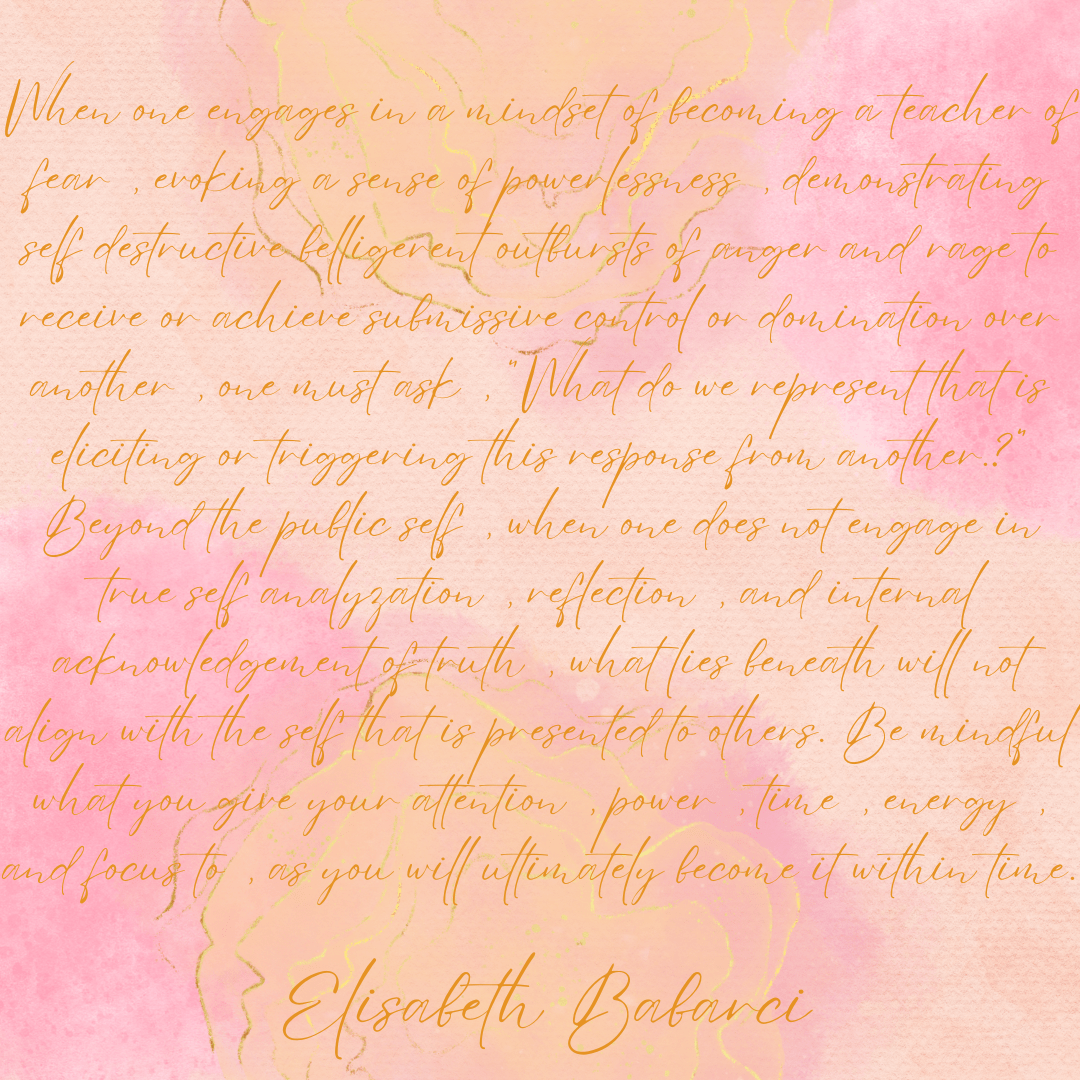 When one engages in a mindset of becoming a teacher of
fear , evoking a sense of powerlessness , demonstrating
self destructive belligerent outbursts of anger and rage to
receive or achieve submissive control or domination over
another , one must ask , "What do we represent that is
eliciting or triggering this response from another..?"
Beyond the public self , when one does not engage in
true self analyzation , reflection , and internal
acknowledgement of truth , what lies beneath will not
align with the self that is presented to others. Be mindful
what you give your attention , power , time , energy ,
and focus to , as you will ultimately become it within time.
Elisabeth Babarci